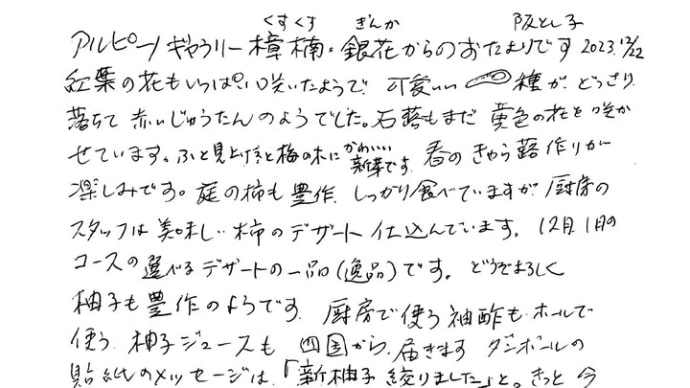 くすくす ぎんか 阪とし子
アルピーノギャラリー樟楠・銀花からのおたよりです 2023.12/22
紅葉の花もいっぱい咲いたようで 可愛いい 種が、どっさり
落ちて 赤いじゅうたんのようでした。石蕗もまだ 黄色の花を咲か
せています。ふと見上げると梅の木に かわいいい 新芽です。春のきゃら蕗作りが
楽しみです。庭の柿も豊作、しっかり食べていますが 厨房の
スタッフは美味しい柿のデザート仕込んでいます。12月1日の
コースの選べるデザートの一品(逸品)です。どうぞよろしく
柚子も豊作のようです。厨房で使う 柚酢も ホールで
使う 柚子ジュースも 四国から 届きます ダンボールの
貼紙のメッセージは、「新柚子 絞りました」と。きっと 今